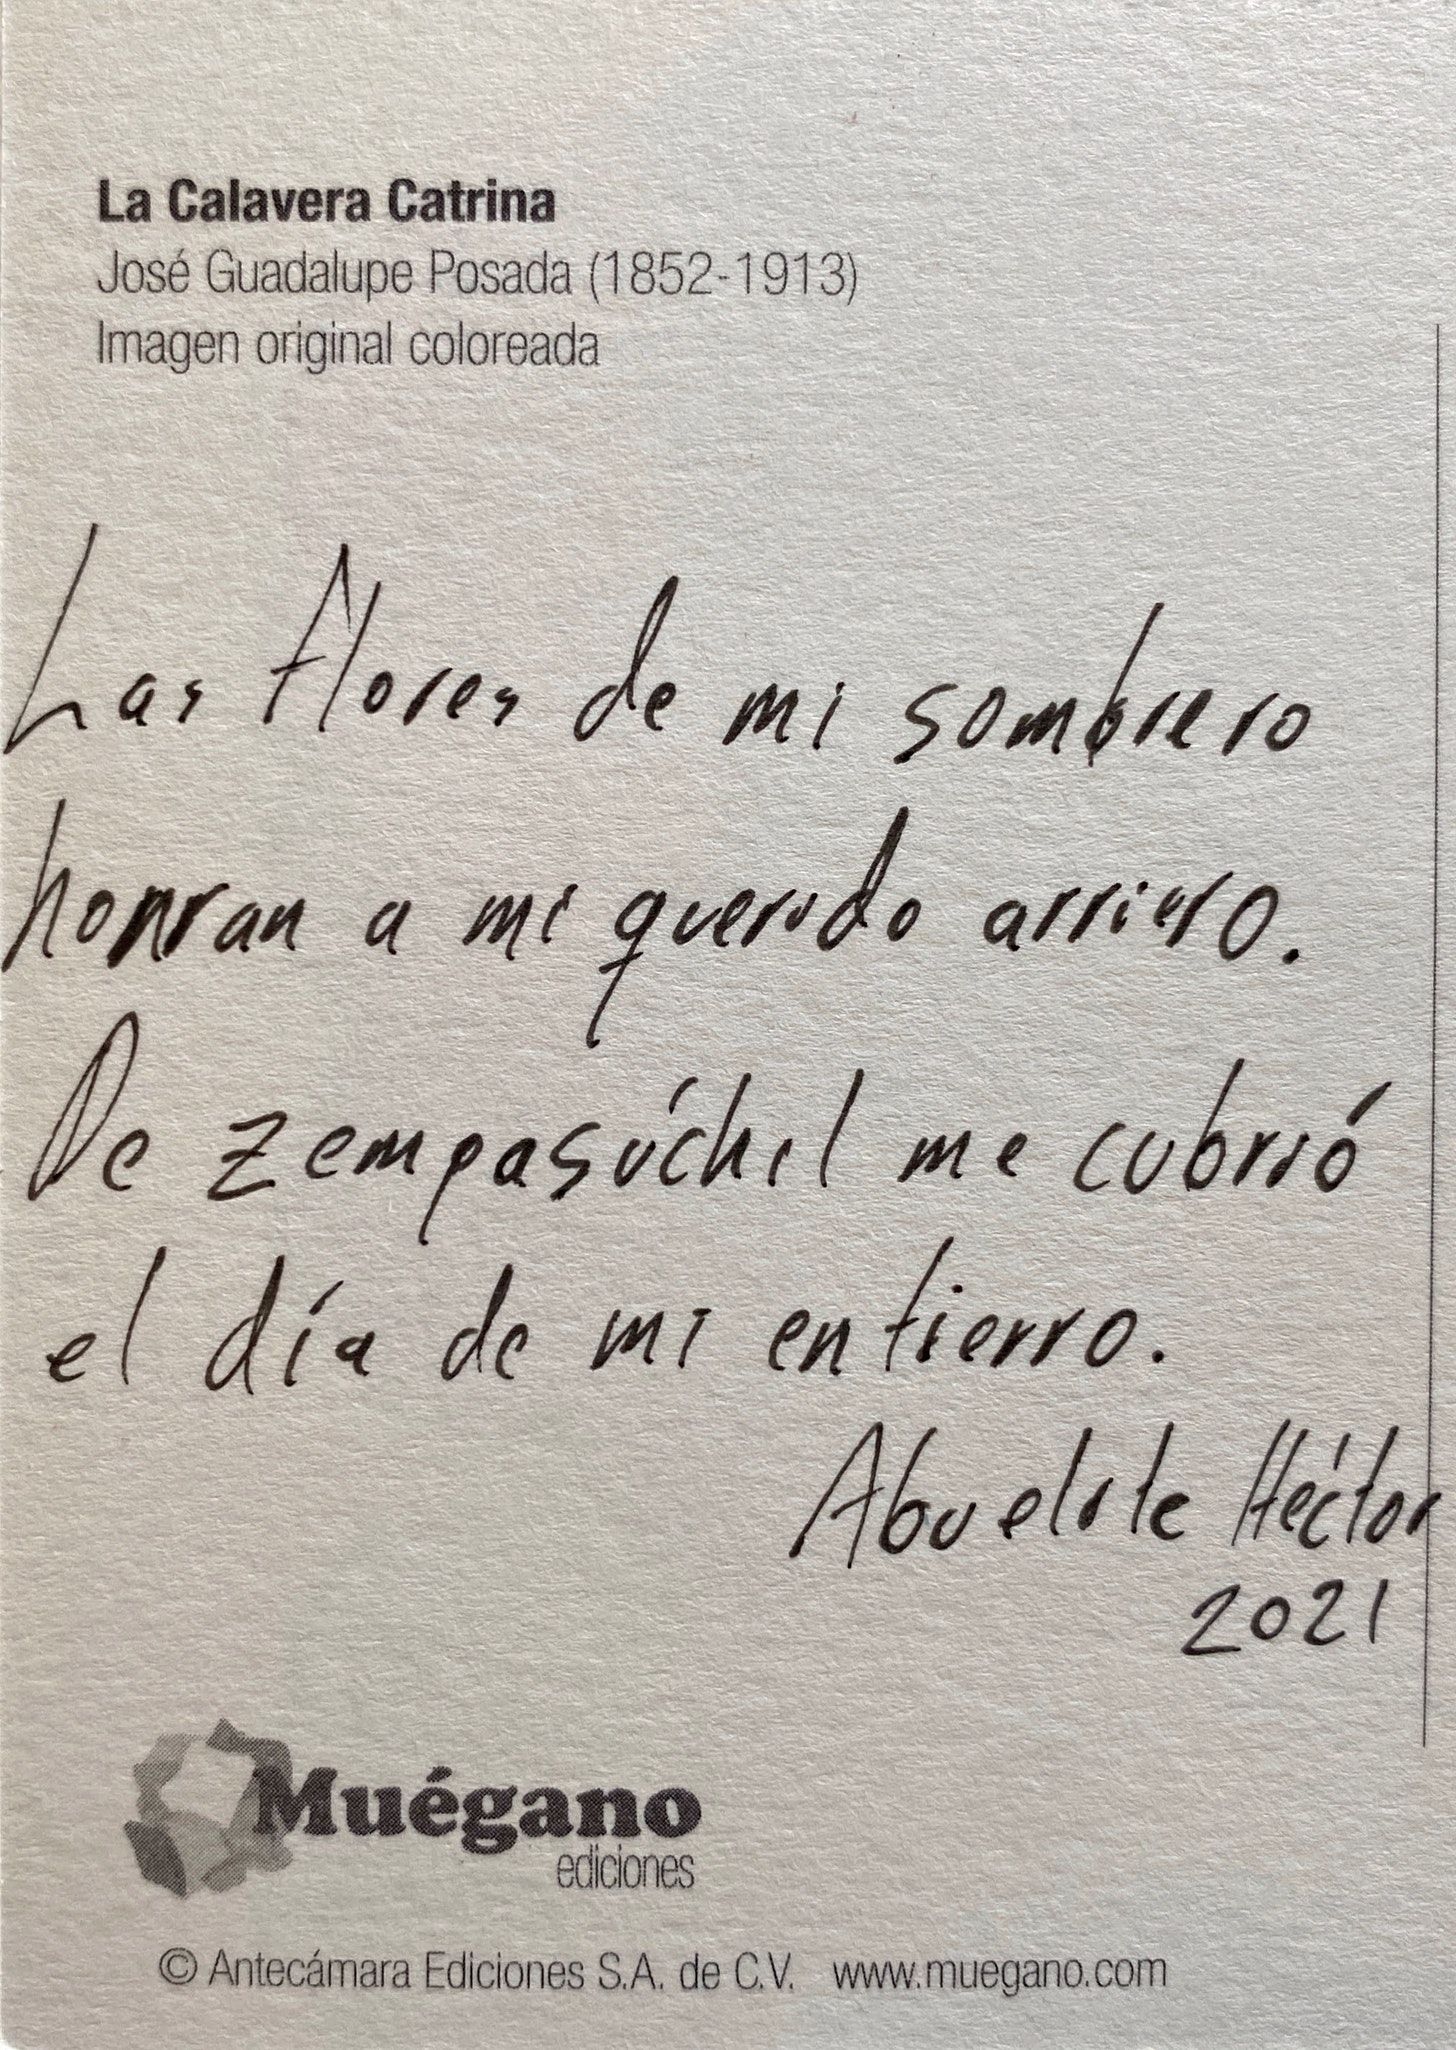 La Calavera Catrina
José Guadalupe Posada (1852-1913)
Imagen original coloreada
Las flores de mi sombrero
honran a mi querido arriero.
De zempasúchil me cubrió
el día de mi entierro.
Abuelite Héctor
2021
Muégano
ediciones
© Antecámara Ediciones S.A. de C.V. www.muegano.com